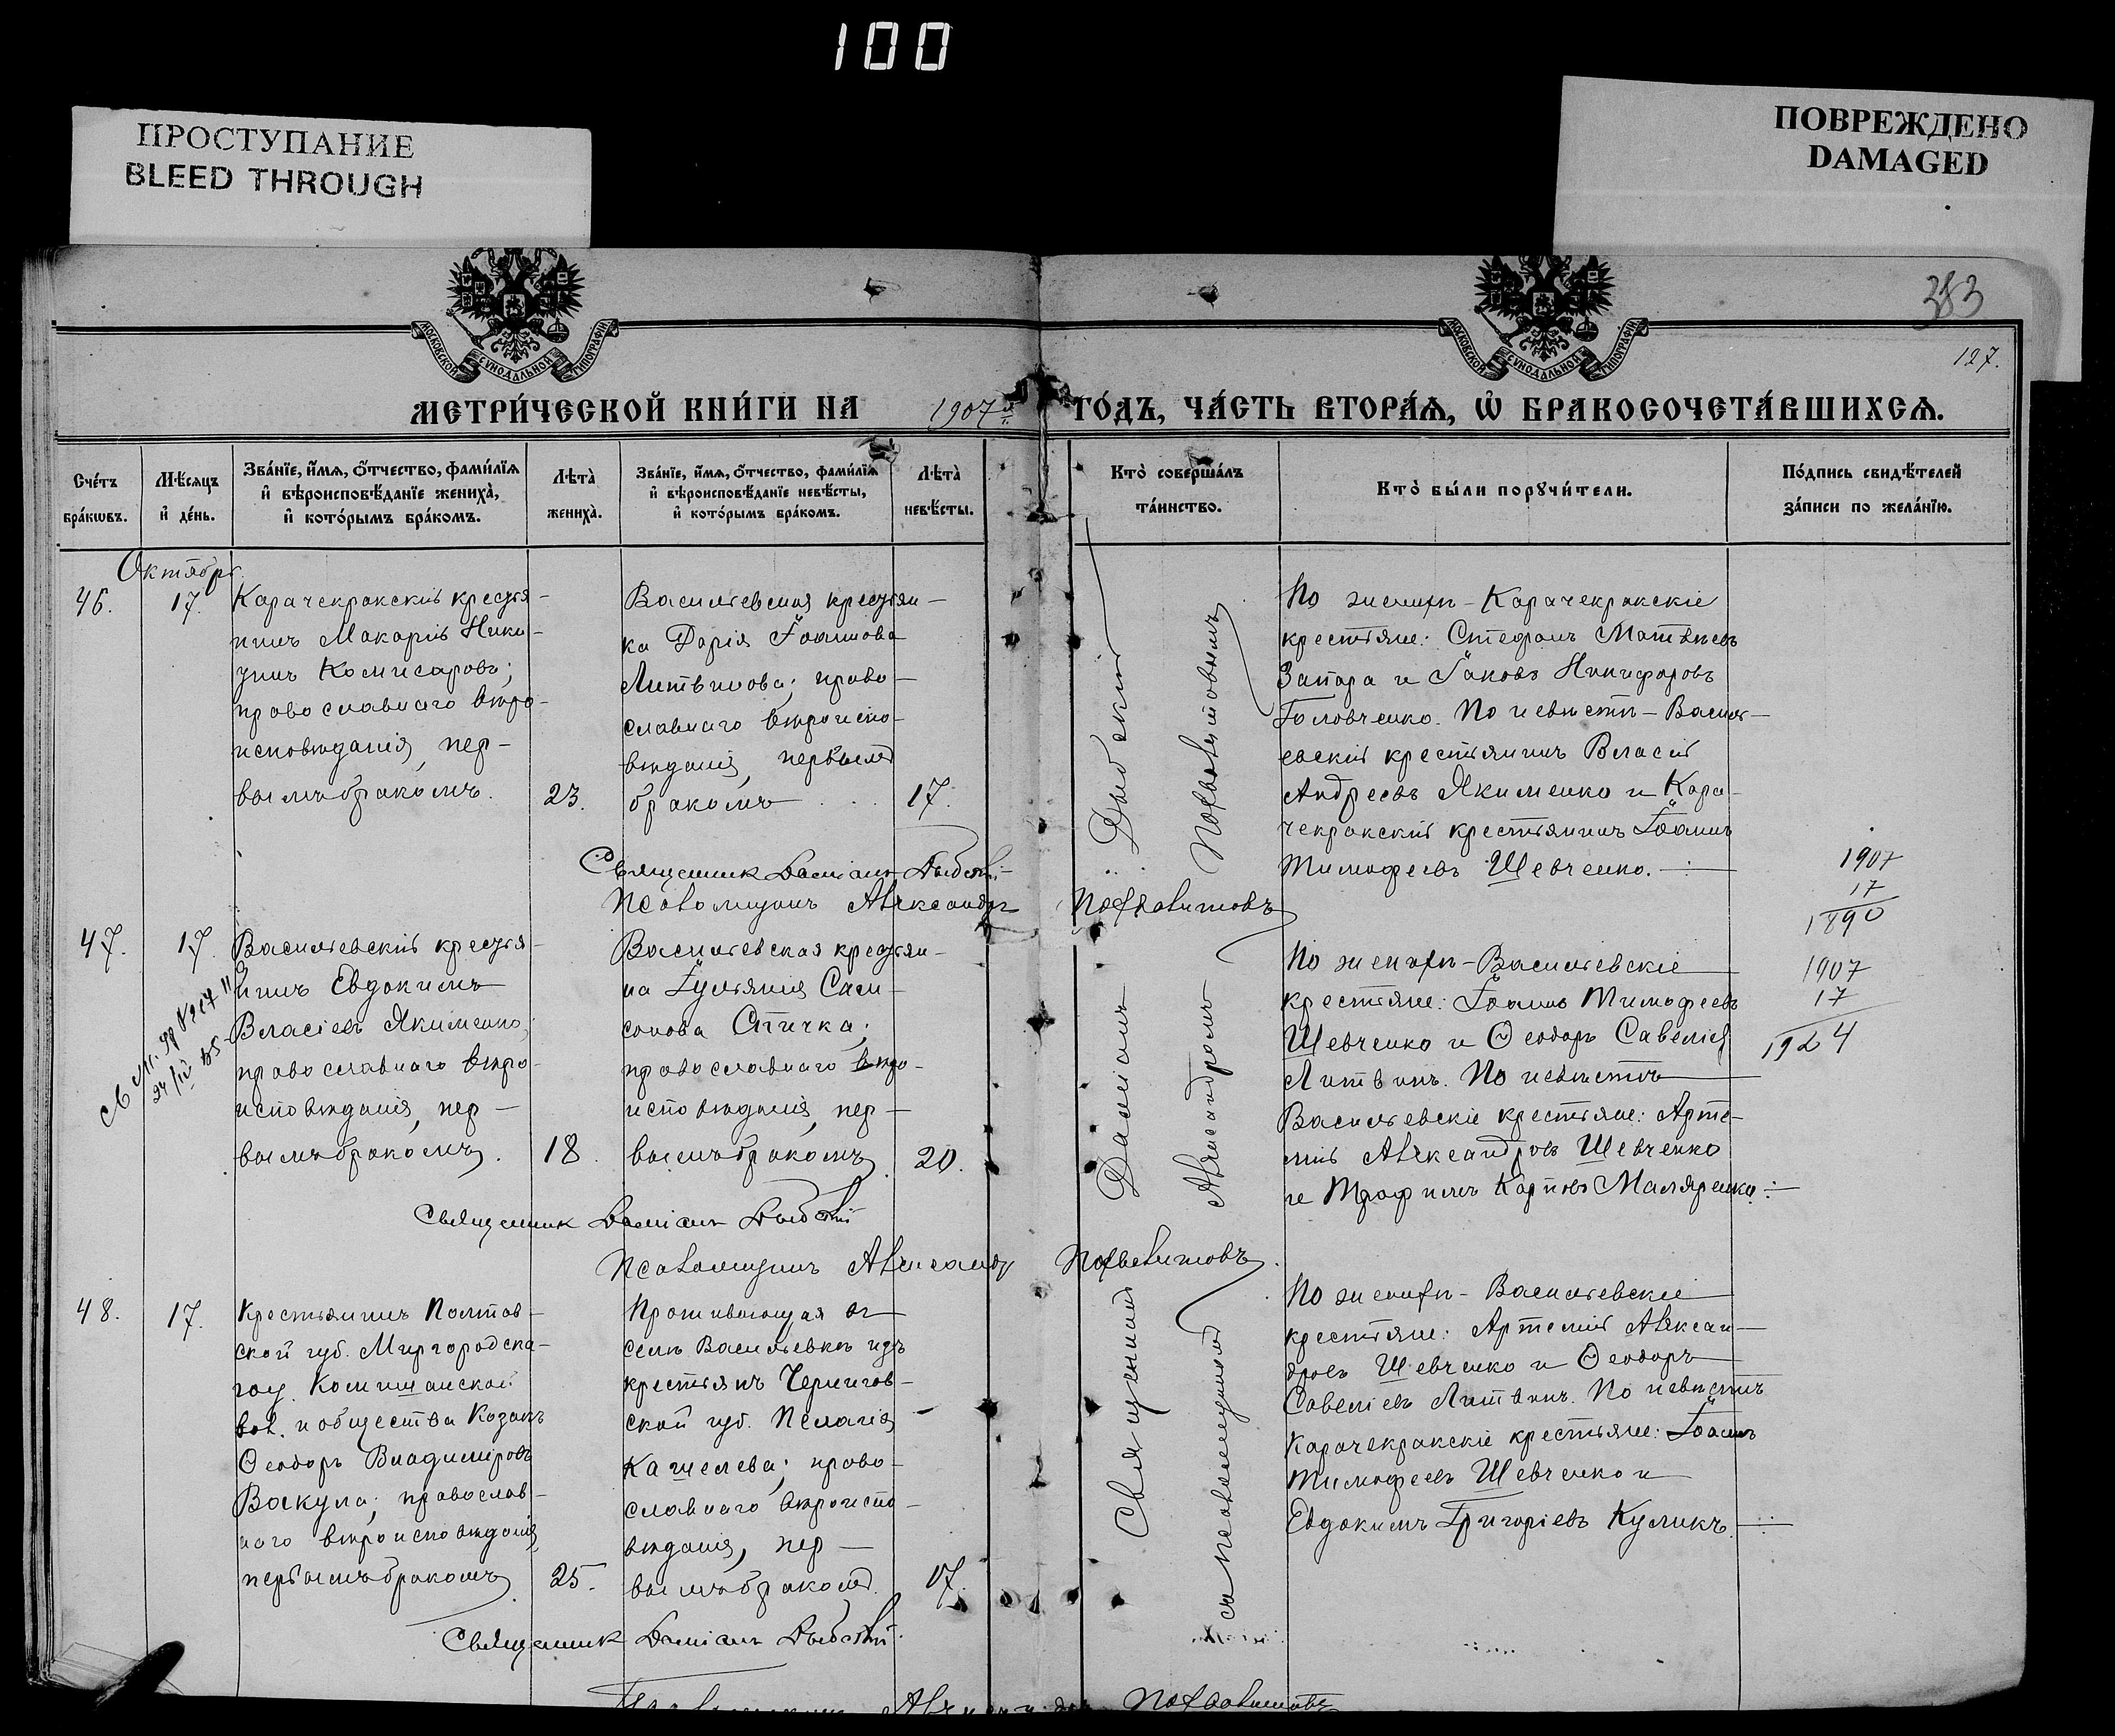 100
ПРОСТУПАНИЕ
BLEED THROUGH
ПОВРЕЖДЕНО
DAMAGED
МОСКОВСКОЙ СѴНОДАЛЬНОЙ ТИПОГРАФІИ
МОСКОВСКОЙ СѴНОДАЛЬНОЙ ТИПОГРАФІИ
383
127.
МЕТРИ́ЧЕСКОЙ КНИ́ГИ НА 1907й ГО́ДЪ, ЧА́СТЬ ВТОРА́Ѧ, Ѡ҆ БРАКОСОЧЕТА́ВШИХСѦ.
Сче́тъ
бра́кωвъ.
Мѣ́сѧцъ
и҆ де́нь.
Зва́нїе, и҆́мѧ, ѻ҆́тчество, фами́лїѧ
и҆ вѣроисповѣ́данїе жениха̀,
и҆ кото́рымъ бра́комъ.
Лѣта̀
жениха̀.
Зва́нїе, и҆́мѧ, ѻ҆́тчество, фами́лїѧ
и҆ вѣроисповѣ́данїе невѣ́сты,
и҆ кото́рымъ бра́комъ.
Лѣта̀
невѣ́сты.
Кто̀ соверша́лъ
та́инство.
Кто̀ бы́ли порꙋчи́тели.
По́дпись свидѣ́телей
за́писи по жела́нїю.
Октябрь.
46.
17.
Карачекракскій крестья-
нинъ Макарій Ники-
тинъ Комисаровъ;
православнаго вѣро-
исповѣданія, пер-
вымъ бракомъ.
23.
Васильевская крестьян-
ка Дарія Іоаннова
Литвинова; право-
славнаго вѣроиспо-
вѣданія, первымъ
бракомъ
17.
По женихѣ - Карачекракскіе
крестьяне: Стефанъ Матвѣевъ
Запара и Іаковъ Никифоровъ
Головченко. По невѣстѣ - Василь-
евскій крестьянинъ Власій
Андреевъ Якименко и Кара-
чекракскій крестьянинъ Іоаннъ
Тимофеевъ Шевченко.
1907
17
1890
Священникъ Даміанъ
Псаломщикъ Александръ
47.
17.
Васильевскій крестья-
нинъ Евдокимъ
Власіевъ Якименко;
православнаго вѣро-
исповѣданія, пер-
вымъ бракомъ.
18.
Васильевская крестьян-
ка Іуліанія Сам-
сонова Спичка;
православнаго вѣро-
исповѣданія, пер-
вымъ бракомъ.
20.
По женихѣ - Васильевскіе
крестьяне: Іоаннъ Тимофеевъ
Шевченко и Ѳеодоръ Савеліевъ
Литвинъ. По невѣстѣ
Васильевскіе крестьяне: Арте-
мій Александровъ Шевченко
и Трофимъ Карповъ Маляренко
1907
17
1924
Священникъ Даміанъ
Псаломщикъ Александръ
48.
17.
Крестьянинъ Полтав-
ской губ. Миргородска-
го у. Комишанской
вол. и общества Козакъ
Ѳеодоръ Владиміровъ
Вакула; православ-
наго вѣроисповѣданія,
первымъ бракомъ.
25.
Проживающая въ
селѣ Васильевкѣ изъ
крестьянъ Чернигов-
ской губ. Пелагія
Кашелева; право-
славнаго вѣроиспо-
вѣданія, пер-
вымъ бракомъ.
17.
По женихѣ - Васильевскіе
крестьяне: Артемій Алексан-
дровъ Шевченко и Ѳеодоръ
Савеліевъ Литвинъ. По невѣстѣ
Карачекракскіе крестьяне: Іоаннъ
Тимофеевъ Шевченко и
Евдокимъ Григоріевъ Куликъ.
Священникъ Даміанъ
Священникъ Даміанъ
съ псаломщикомъ Александромъ